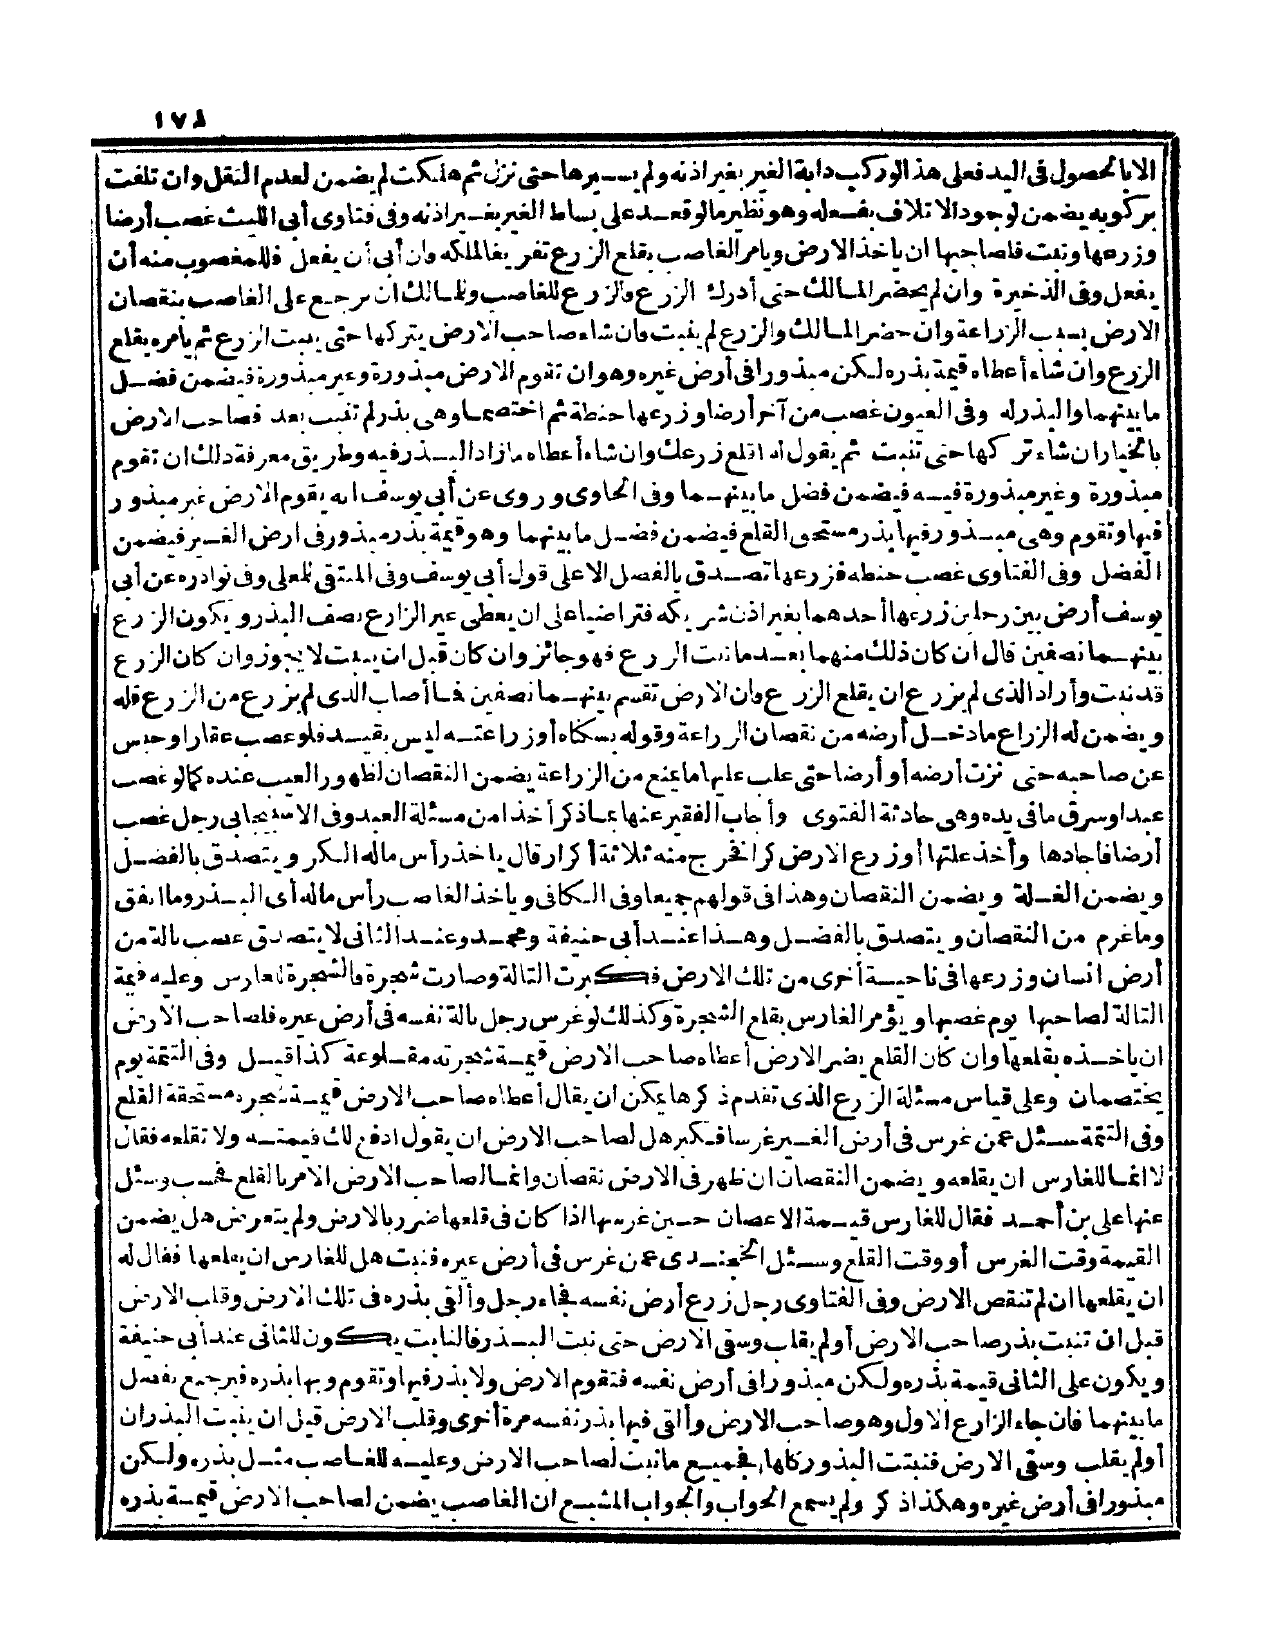 ١٧٨
الا بالحصول فى اليد فعلى هذا لو ركب دابة الغير بغير اذنه ولم يسيرها حتى نزل ثم هلكت لم يضمن لعدم النقل وان تلفت
بركوبه يضمن لوجود الاتلاف بفعله وهو نظير ما لو قعد على بساط الغير بغير اذنه وفى فتاوى أبى الليث غصب أرضا
وزرعها ونبت فلصاحبها ان ياخذ الارض ويامر الغاصب بقلع الزرع تفريغا لملكه فان أبى أن يفعل فللمغصوب منه أن
يفعل وفى الذخيرة وان لم يحضر المالك حتى أدرك الزرع فالزرع للغاصب وللمالك ان يرجع على الغاصب بنقصان
الارض بسبب الزراعة وان حضر المالك والزرع لم ينبت فان شاء صاحب الارض يتركها حتى ينبت الزرع ثم يامره بقلع
الزرع وان شاء أعطاه قيمة بذره لكن مبذورا فى أرض غيره وهو ان تقوم الارض مبذورة وغير مبذورة فيضمن فضل
ما بينهما والبذر له وفى العيون غصب من آخر أرضا وزرعها حنطة ثم اختصما وهى بذر لم تنبت بعد فصاحب الارض
بالخيار ان شاء تركها حتى تنبت ثم يقول له اقلع زرعك وان شاء أعطاه ما زاد البذر فيه وطريق معرفة ذلك ان تقوم
مبذورة وغير مبذورة فيه فيضمن فضل ما بينهما وفى الحاوى وروى عن أبى يوسف انه يقوم الارض غير مبذور
فيها وتقوم وهى مبذور فيها بذر مستحق القلع فيضمن فضل ما بينهما وهو قيمة بذر مبذور فى ارض الغير فيضمن
الفضل وفى الفتاوى غصب حنطه فزرعها تصدق بالفضل الا على قول أبى يوسف وفى المنتقى للمعلى وفى نوادره عن أبى
يوسف أرض بين رجلين زرعها أحدهما بغير اذن شريكه فتراضيا على ان يعطى غير الزارع نصف البذر ويكون الزرع
بينهما نصفين قال ان كان ذلك منهما بعد ما نبت الزرع فهو جائز وان كان قبل ان ينبت لا يجوز وان كان الزرع
قد نبت وأراد الذى لم يزرع ان يقلع الزرع فان الارض تقسم بينهما نصفين فما أصاب الذى لم يزرع من الزرع قلعه
ويضمن له الزراع ما دخل أرضه من نقصان الزراعة وقوله بسكناه أو زراعته ليس بقيد فلو غصب عقارا وحبس
عن صاحبه حتى نزت أرضه أو أرضا حتى غلب عليها ما يمنع من الزراعة يضمن النقصان لظهور العيب عنده كما لو غصب
عبدا وسرق ما فى يده وهى حادثة الفتوى وأجاب الفقير عنها بما ذكر أخذا من مسئلة العبد وفى الاسبيجابى رجل غصب
أرضا فاجادها وأخذ غلتها أو زرع الارض كرا فخرج منه ثلاثة أكرار قال ياخذ رأس ماله الكر ويتصدق بالفضل
ويضمن الغلة ويضمن النقصان وهذا فى قولهم جميعا وفى الكافى وياخذ الغاصب رأس ماله أى البذر وما انفق
وما غرم من النقصان ويتصدق بالفضل وهذا عند أبى حنيفة ومحمد وعند الثانى لا يتصدق غصب تالة من
أرض انسان وزرعها فى ناحية أخرى من تلك الارض فكبرت التالة وصارت شجرة فالشجرة للغارس وعليه قيمة
التالة لصاحبها يوم غصبها ويؤمر الغارس بقلع الشجرة وكذلك لو غرس رجل تالة نفسه فى أرض غيره فلصاحب الارض
ان ياخذه بقلعها وان كان القلع يضر الارض أعطاه صاحب الارض قيمة شجرته مقلوعة كذا قيل وفى التتمة يوم
يختصمان وعلى قياس مسئلة الزرع الذى تقدم ذكرها يمكن ان يقال أعطاه صاحب الارض قيمة شجره مستحقة القلع
وفى التتمة سئل عمن غرس فى أرض الغير غرسا فكبر هل لصاحب الارض ان يقول ادفع لك قيمته ولا تقلعه فقال
لا انما للغارس ان يقلعه ويضمن النقصان ان ظهر فى الارض نقصان وانما لصاحب الارض الامر بالقلع فحسب وسئل
عنها على بن أحمد فقال للغارس قيمة الاغصان حين غرسها اذا كان فى قلعها ضرر بالارض ولم يتعرض هل يضمن
القيمة وقت الغرس أو وقت القلع وسئل الخجندى عمن غرس فى أرض غيره فنبت هل للغارس ان يقلعها فقال له
ان يقلعها ان لم تنقص الارض وفى الفتاوى رجل زرع أرض نفسه فجاء رجل وألقى بذره فى تلك الارض وقلب الارض
قبل ان تنبت بذر صاحب الارض أو لم يقلب وسقى الارض حتى نبت البذر فالنابت يكون للثانى عند أبى حنيفة
ويكون على الثانى قيمة بذره ولكن مبذورا فى أرض نفسه فتقوم الارض ولا بذر فيها وتقوم وبها بذره فيرجع بفضل
ما بينهما فان جاء الزارع الاول وهو صاحب الارض وألقى فيها بذر نفسه مرة أخرى وقلب الارض قبل ان ينبت البذر ان
أو لم يقلب وسقى الارض فنبتت البذور كلها فجميع ما نبت لصاحب الارض وعليه للغاصب مثل بذره ولكن
مبذورا فى أرض غيره وهكذا ذكر ولم يسمع الجواب والجواب المشبع ان الغاصب يضمن لصاحب الارض قيمة بذره